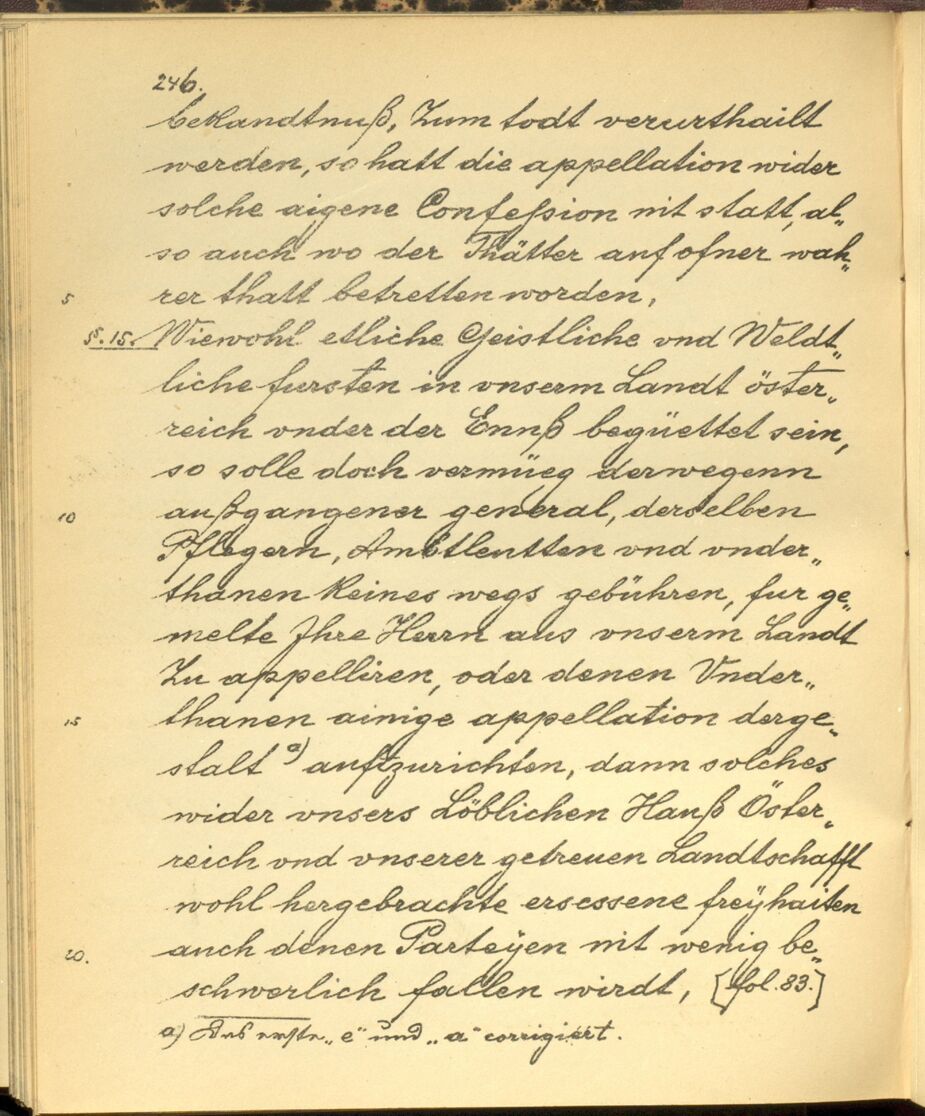 246.
bekandtnuß, Zum todt verurthailt
werden, so hatt die appellation wider
solche aigene Confeßion nit statt, al„
so auch wo der Thätter auf ofner wah„
5 rer thatt betretten worden,
§. 15. Wiewohl etliche Geistliche vnd Weldt„
liche fursten in vnserm Landt öster„
reich vnder der Ennß begüettet sein,
so solle doch vermüeg derwegenn
10 außgangener general, derselben
Pflegern, Ambtleutten vnd vnder„
thanen keines wegs gebühren, fur ge„
melte Jhre Herrn aus vnserm Landt
Zu appelliren, oder denen Vnder„
15 thanen ainige appellation derge„
stalt a) auftzurichten, dann solches
wider vnsers Löblichen Hauß Öster„
reich vnd vnserer getreuen Landtschafft
wohl hergebrachte ersessene freÿhaiten
20. auch denen Parteÿen nit wenig be„
schwerlich fallen wirdt, [fol. 83.]
a) Das erste „e" und „a" corrigiert.